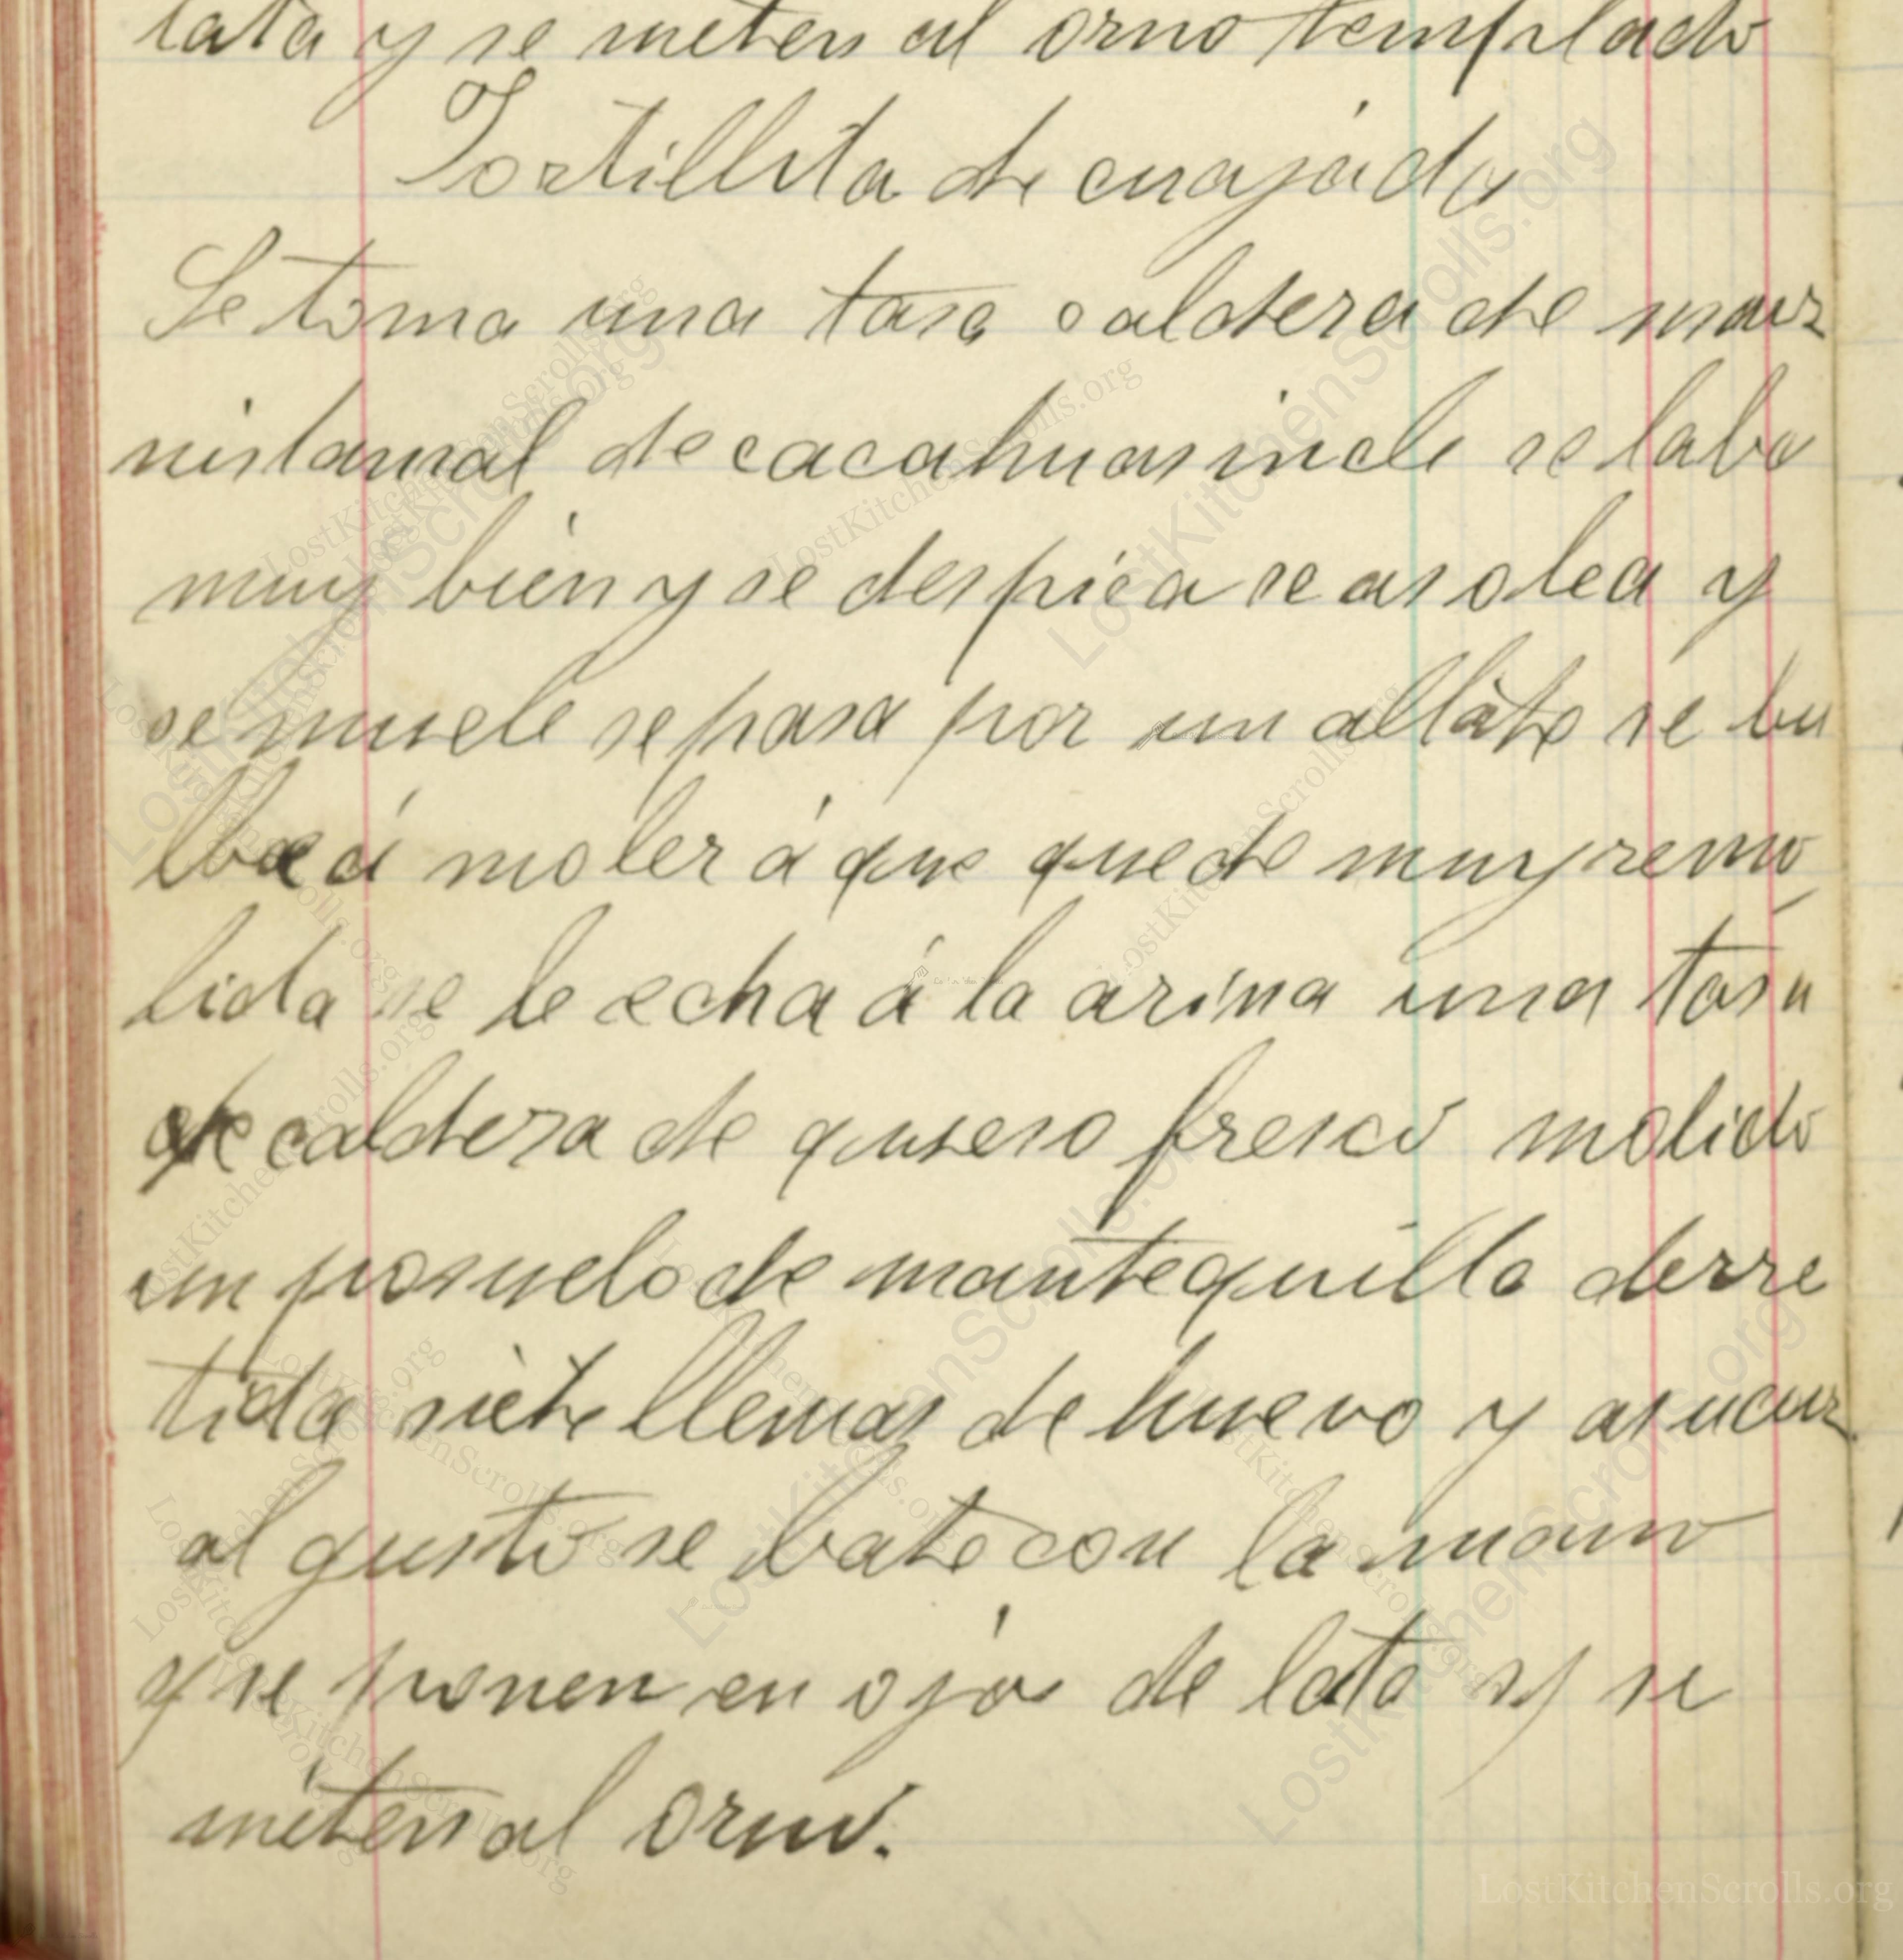 lata y se meten al orno templado
Tortillita de cuajada
Se toma una tasa caldera de maiz
nistamal de cacahuasincle se laba
muy bien y se despica se asolea y
se muele se pasa por un allate se bu
lbe á moler á que quede muy remo
lida se le echa á la arina una tasa
de caldera de queseso fresco molido
un posuelo de mantequilla derre
tida siete llemas de huevo y asucar
al gusto se bate con la mano
y se ponen en ojas de lata y se
meten al orno.
LostKitchenScrolls.org